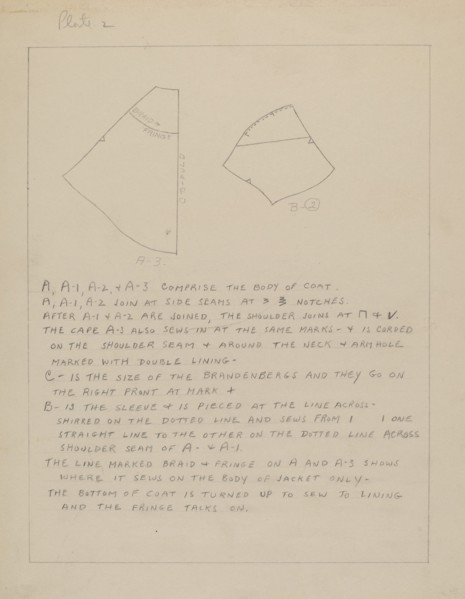 Plate 2
BRAID &
FRINGE
A-3
B-2
A, A-1, A-2, & A-3 COMPRISE THE BODY OF COAT.
A, A-1, A-2 JOIN AT SIDE SEAMS AT NOTCHES.
AFTER A-1 & A-2 ARE JOINED, THE SHOULDER JOINS AT & V.
THE CAPE A-3 ALSO SEWS IN AT THE SAME MARKS - & IS CORDED
ON THE SHOULDER SEAM & AROUND THE NECK & ARMHOLE
MARKED WITH DOUBLE LINING -
C - IS THE SIZE OF THE BRANDENBERGS AND THEY GO ON
THE RIGHT FRONT AT MARK +
B - IS THE SLEEVE & IS PIECED AT THE LINE ACROSS -
SHIRRED ON THE DOTTED LINE AND SEWS FROM I I ONE
STRAIGHT LINE TO THE OTHER ON THE DITTED LINE ACROSS
SHOULDER SEAM OF A - & A-1.
THE LINE MARKED BRAID & FRINGE ON A AND A-3 SHOWS
WHERE IT SEWS ON THE BODY OF JACKET ONLY -
THE BOTTOM OF COAT IS TURNED UP TO SEW TO LINING
AND THE FRINGE TALKS ON.